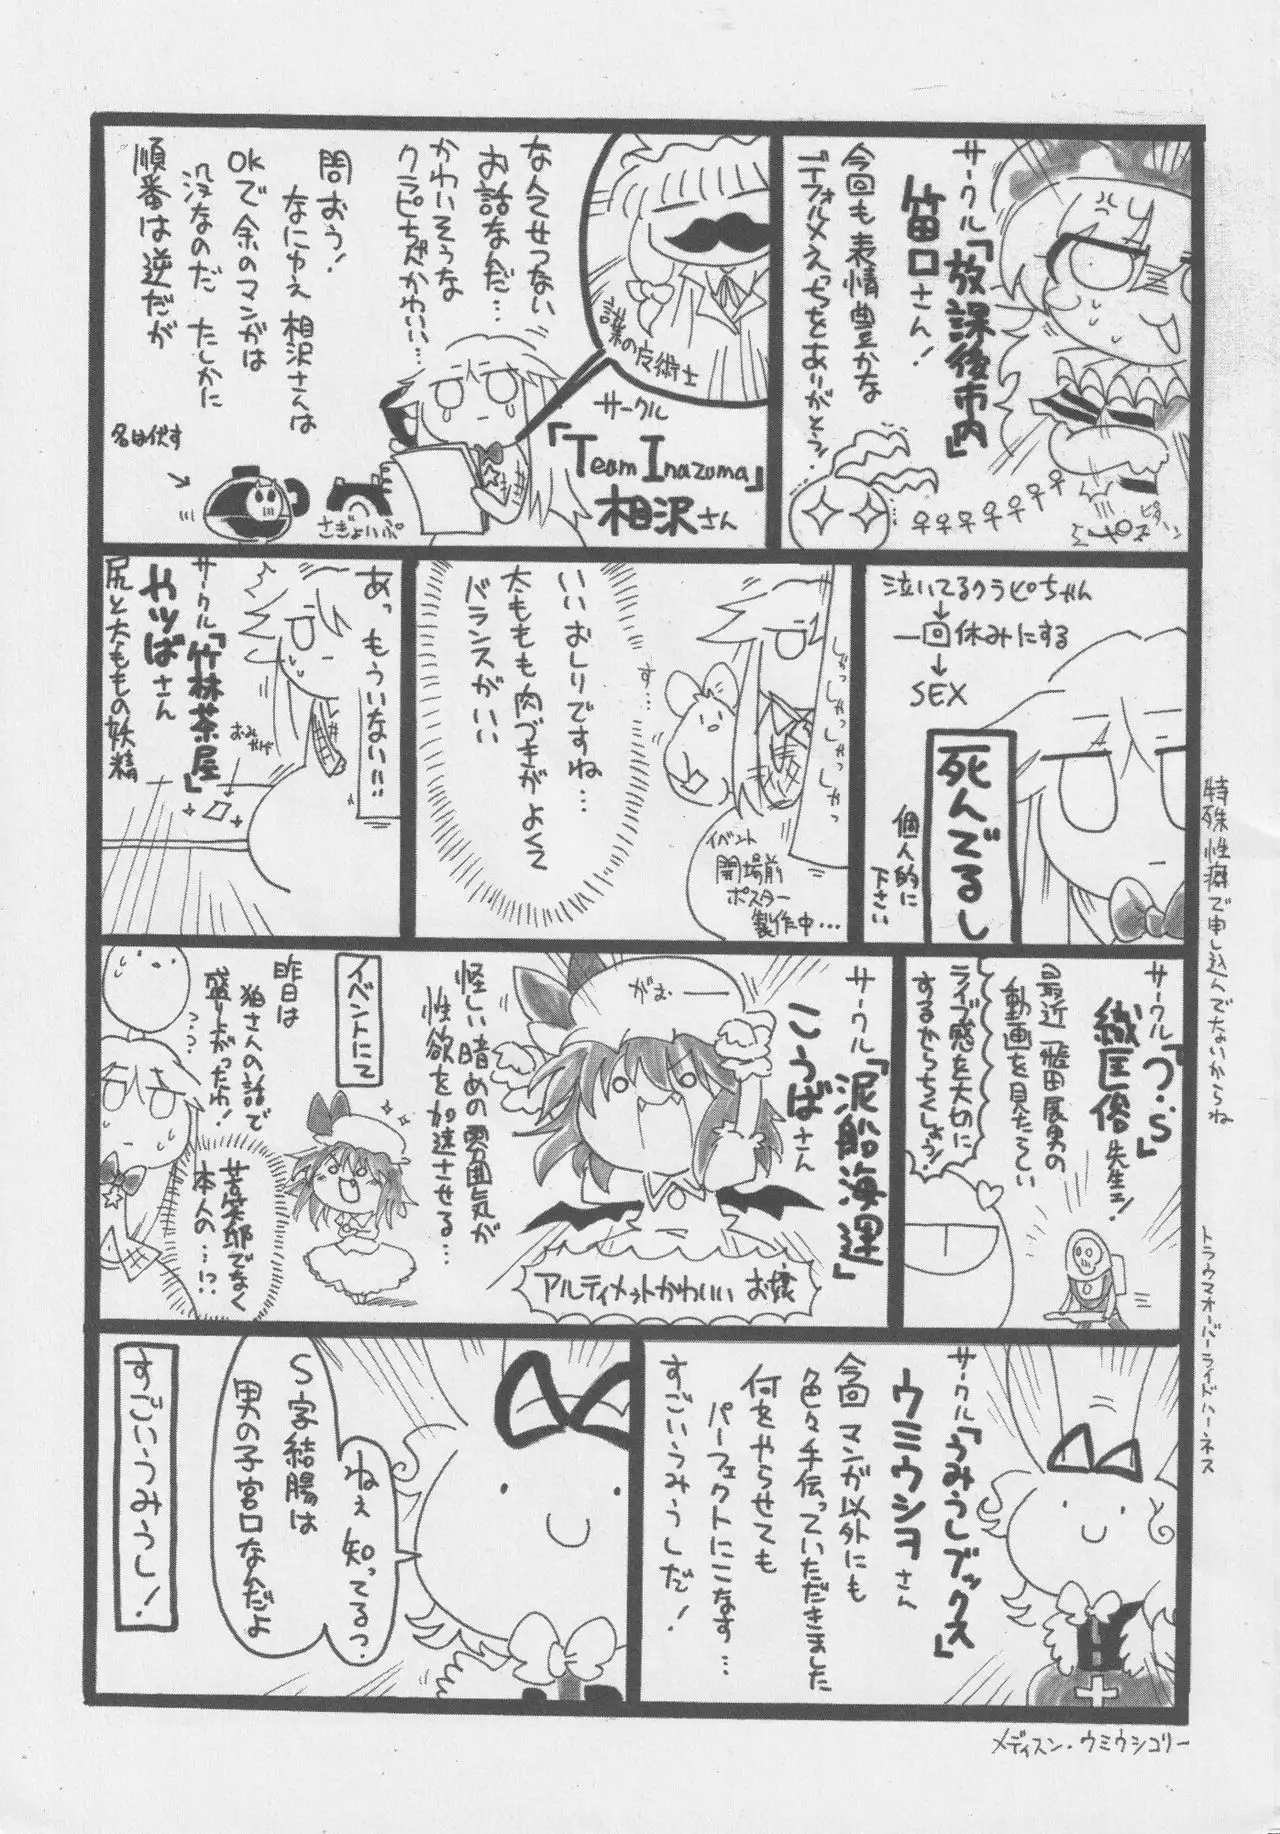 サークル「放課後市内」
笛口さん!
今回も表情豊かな
デフォルメえっちをありがとう!
なんてせつない
お話なんだ…
かわいそうな
クラピちゃんかわい…
サークル
「Team Inazuma」
相沢さん
問おう!
なにゆえ相沢さんは
OKで余のマンガは
没なのだ たしかに
順番は逆だが
名は伏す
さぎょいぷ
泣いてるクラピちゃん
↓
一回休みにする
↓
SEX
死んでるし
個人的に
下さい
特殊性癖で申し込んでないからね
いいおしりですね…
太ももも肉づきがよくて
バランスがいい
す…
イベント
開場前
ポスター
製作中…
あっ もういない!!
サークル「竹林茶屋」
やツばさん
おみやげ
尻と太ももの妖精
サークル「つ・s」
織日俊先生!
動画を見たらしい
ライブ感を大切に
するからちくしょう!
トラウマオーバーライドハーネス
サークル「泥船海運」
こうばさん
がおーー
アルティメットかわいい お嬢
怪しい暗めの雰囲気が
性欲を加速させる…
イベントにて
昨日は
狛さんの話で
盛り上がったわ!
苦笑耶でなく
本人の…!?
サークル「うみうしブックス」
ウミウシヲさん
今回マンガ以外にも
色々手伝っていただきました
何をやらせても
パーフェクトにこなす…
すごいうみうしだ!
ねぇ 知ってるっ
S字結腸は
男の子宮口なんだよ
すごいうみうし!
メディスン・ウミウシコリー